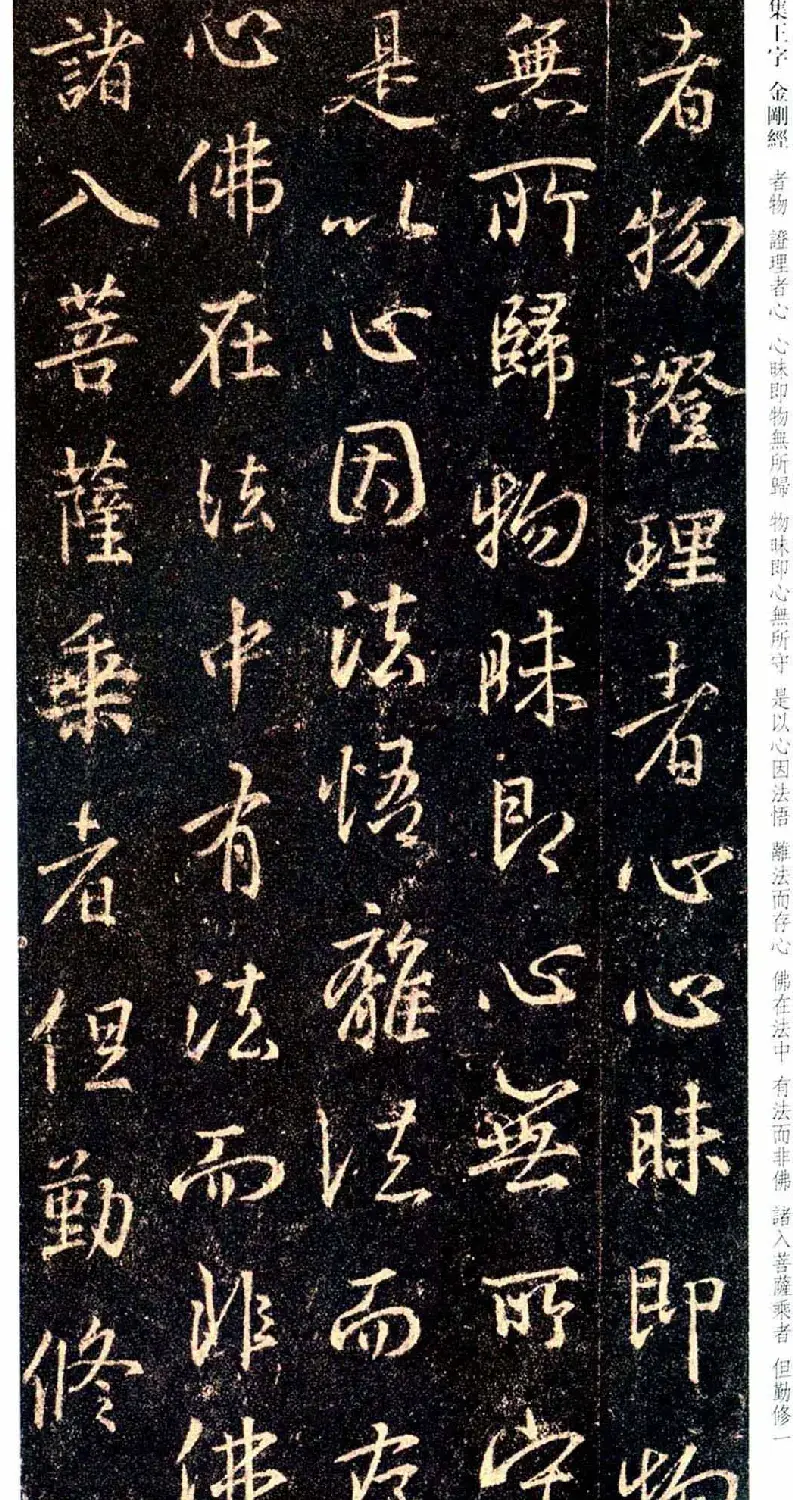 集王字 金剛經 者物 證理者心 心昧即物無所歸 物昧即心無所守 是以心因法悟 離法而存心 佛在法中 有法而非佛 諸入菩薩乘者 但勤修一
者物證理者心心昧即物
無所歸物昧即心無所守
是以心因法悟離法而存
心佛在法中有法而非佛
諸入菩薩乘者但勤修